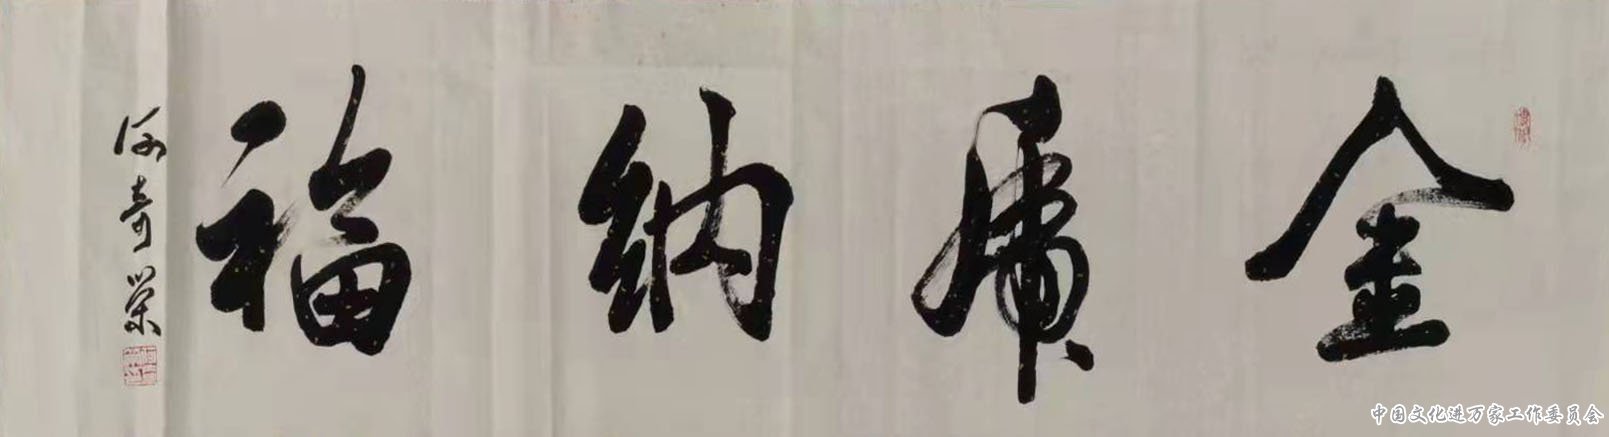 金虎纳福
何奇荣
中国文化进万家工作委员会